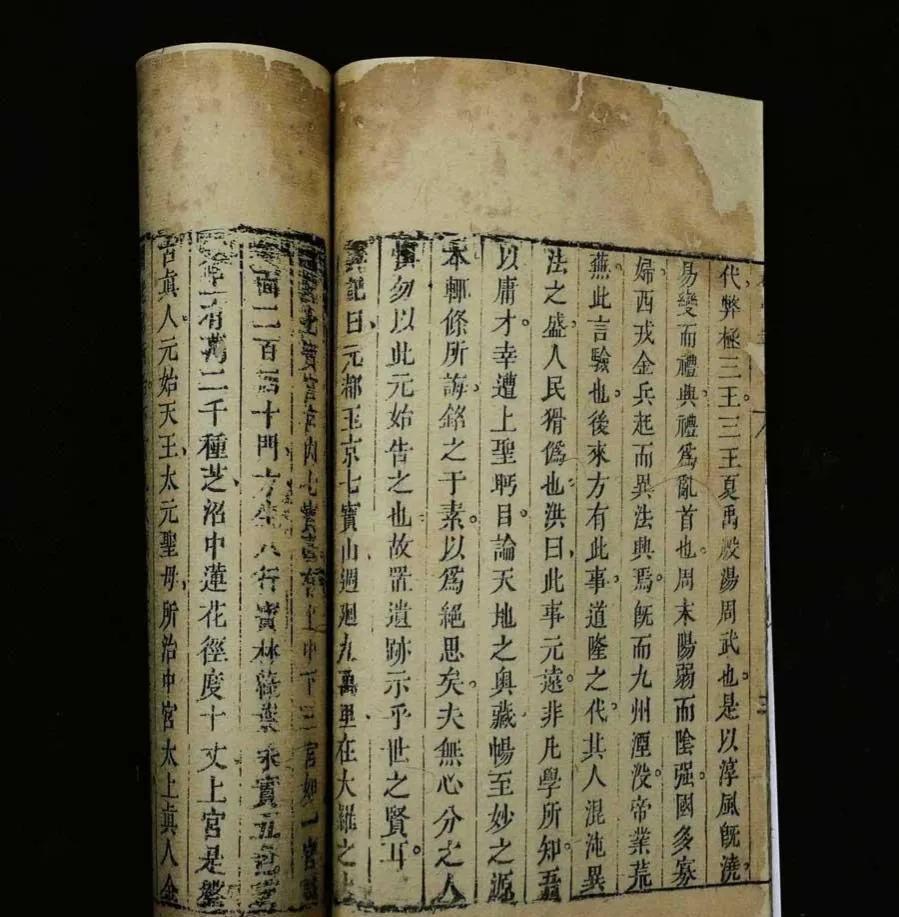 代弊極三王三王夏禹殷湯周武也是以淳風旣澆
易變而禮興禮爲亂首也周末陽弱而陰强國多寡
婦西戎金兵起而異法興焉旣而九州湮沒帝業荒
蕪此言驗也後來方有此事道隆之代其人混沌異
法之盛人民猾僞也洪曰此事元遠非凡學所知吾
以庸才幸遭上聖眄目論天地之奧藏暢至妙之源
本輒條所誨銘之于素以爲絕思矣夫無心分之人
愼勿以此元始告之也故置遺跡示乎世之賢耳
眞記曰元都玉京七寶山週廻九萬里在大羅之上
七寶宮宮内七寶臺有上中下三宮如一宮城
面二百四十門方生八行寶林葉朱實五色芝
上有萬二千種芝沼中蓮花徑度十丈上宮是盤
古眞人元始天王太元聖母所治中宮太上眞人金